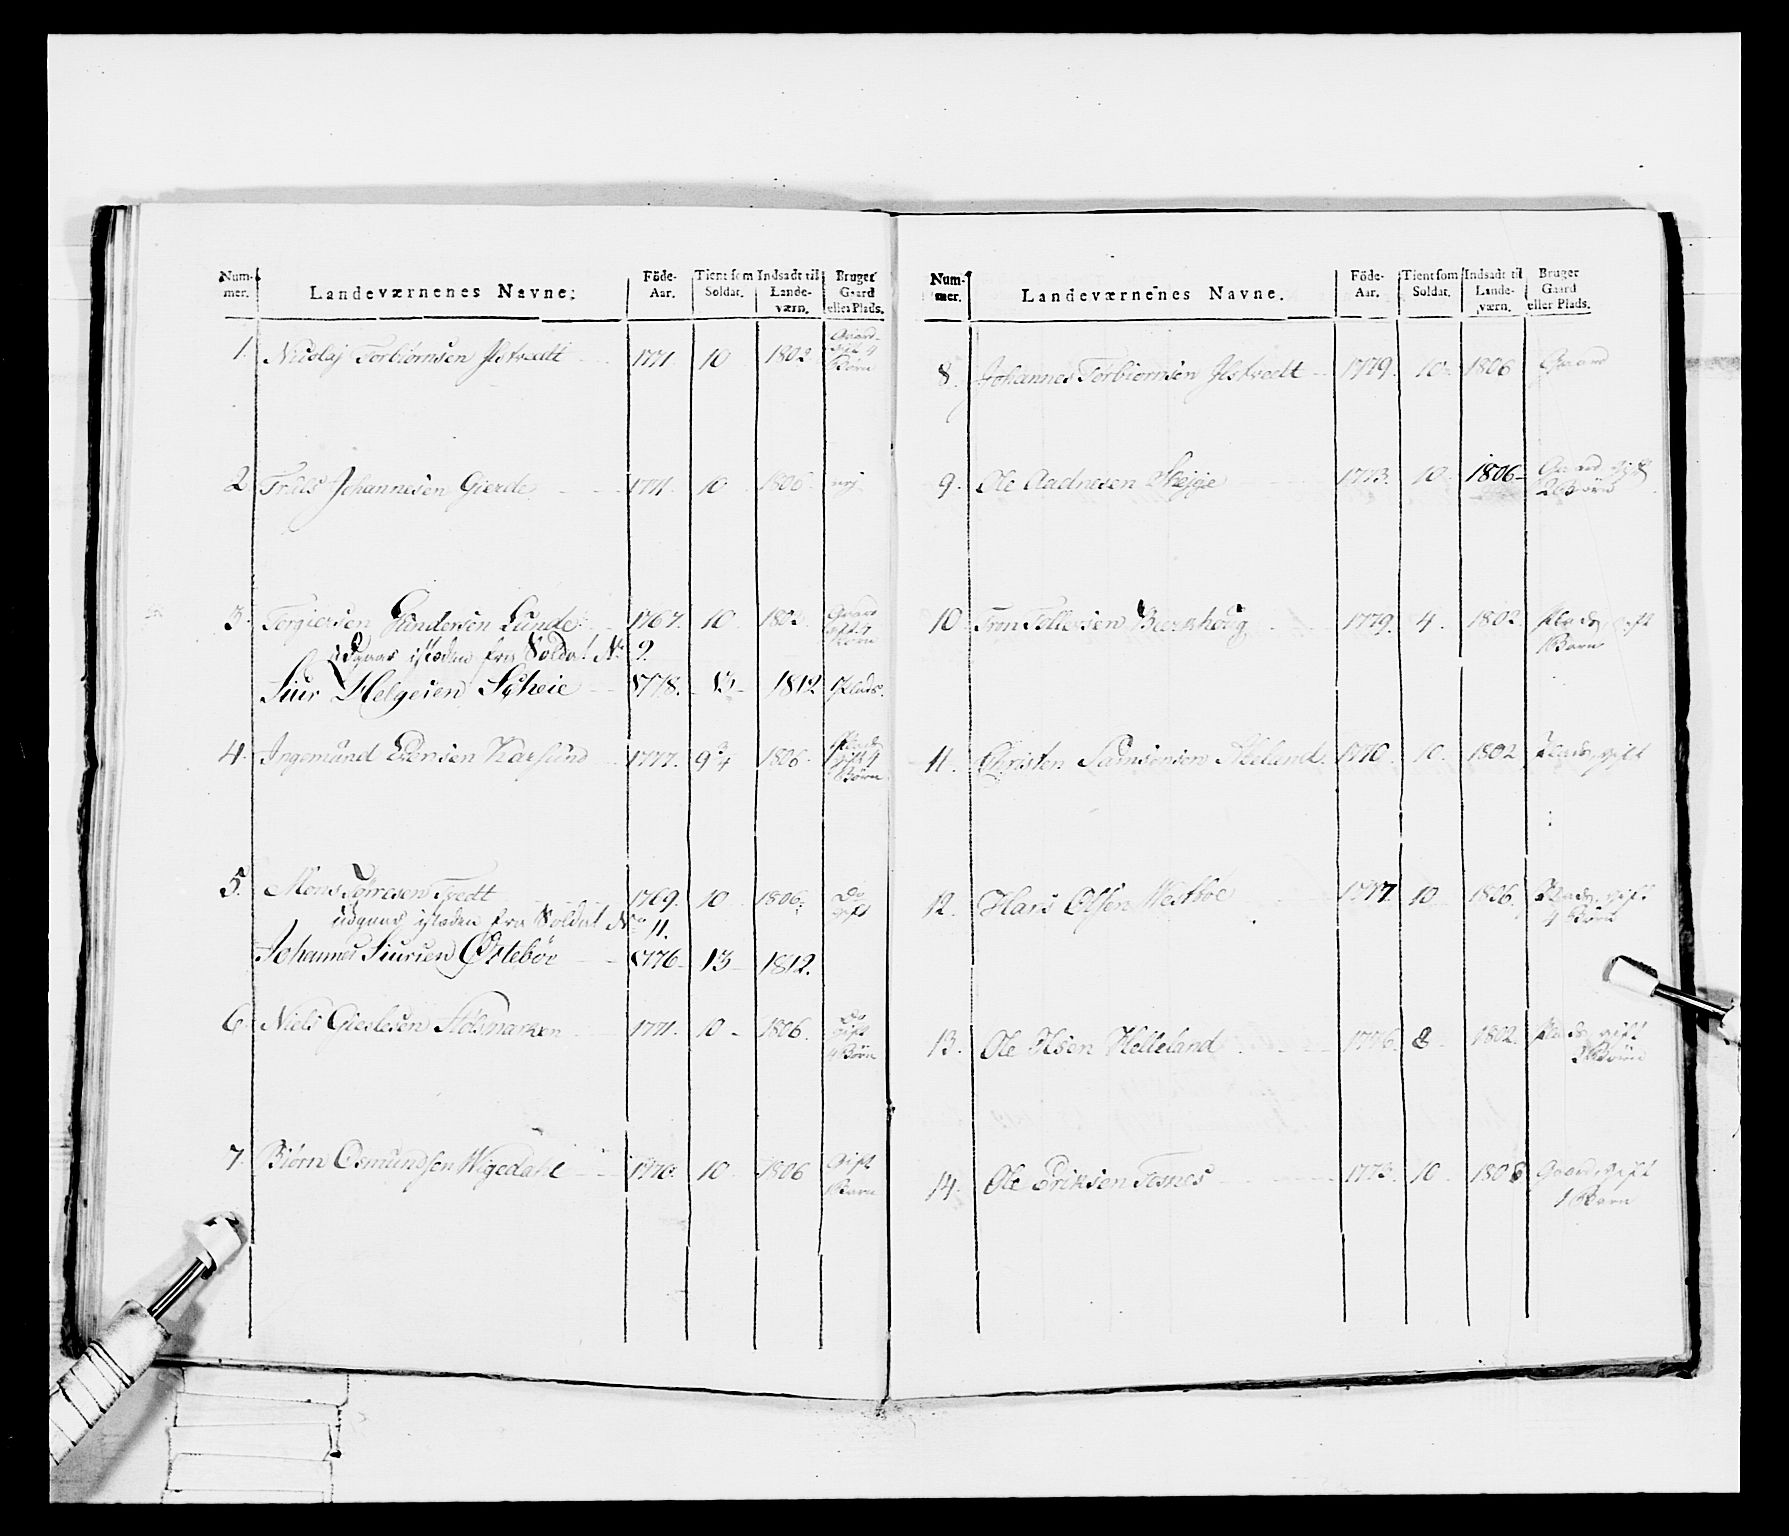 Num-
mer.
Landeværnenes Navne.
Föde-
Aar.
Tient som
Soldat.
Indsadt til
Lande-
værn.
Bruger
Gaard
eller Plads.
1. Nicolaj Torbiörnsen Ilstvedt 1771. 10 1802 Gaard
gift 4
Börn
2. Truls Johannesen Gierde 1771. 10 1806 nej
3. Torgiersen Gundersen Lunde 1767. 10 1802 Gaard
gift 4
Börn
udgaar isteden fra Soldat No 9.
Siur Helgesen Scheie 1778. 13 1812 Plads.
4. Ingemund Karsund 1777. 9 3/4 1806 Plads
gift 4
Börn
5. Mons Tøresen Tvedt 1769. 10 1806. Do
gift
udgaar isteden fra Soldat No 11.
Johannes Siursen Østeböe 1776 13 1812.
6. Niels Gieslesen Holsmarken 1771. 10 1806. Do
gift
4 Börn
7. Biörn Osmundsen Wigedahl 1770. 10 1806 Gift
Barn
Num-
mer.
Landeværnenes Navne.
Föde-
Aar.
Tient som
Soldat.
Indsadt til
Lande-
værn.
Bruger
Gaard
eller Plads.
8. Johannes Torbiörnsen Ilstvedt 1779. 10. 1806 Gaard
9. Ole Aadnesen Skejje 1773. 10 1806 Gaard, gift
2 Börn
10 Tron Tollefsen 1779. 4. 1802 Plads, gift
1 Barn
11. Christen Samsonsen 1770. 10. 1802 Plads, gift
12. Hans Olsen Westböe 1777. 10 1806. Plads, gift
4 Börn
13. Ole Ilsen Helleland 1776. 8. 1802. Plads, gift
2 Börn
14. Ole Eriksen Tesnes 1773. 10. 1806 Gaard, gift
1 Barn